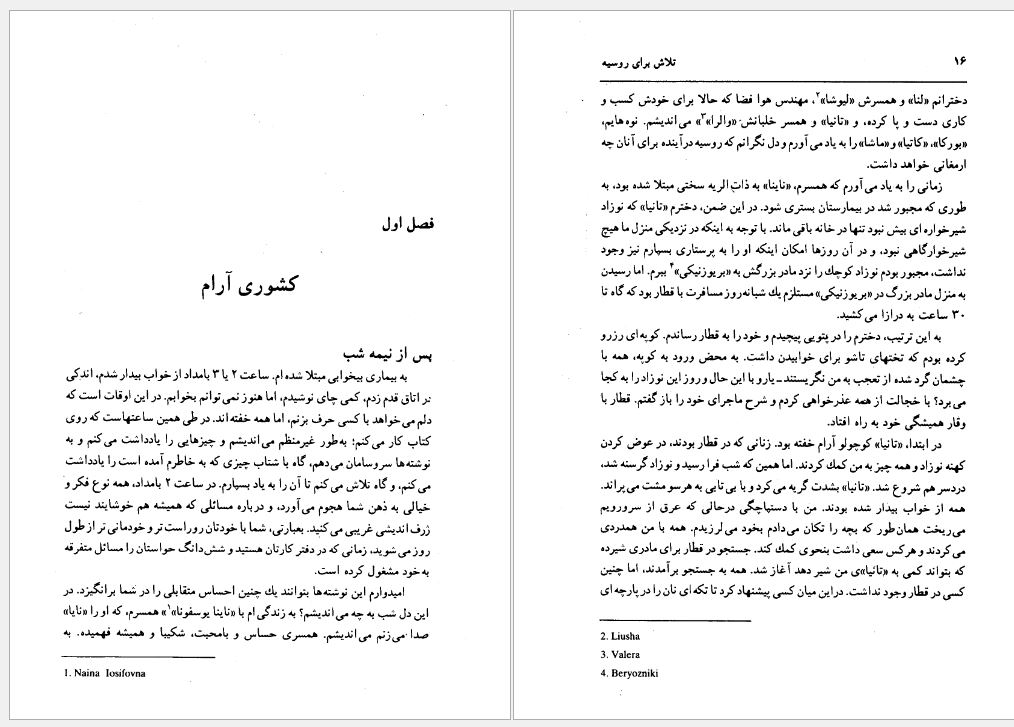 فصل اول
کشوری آرام
پس از نیمه شب
به بیماری بیخوابی مبتلا شده ام. ساعت ۲ یا ۳ بامداد از خواب بیدار شدم، اندکی
در اتاق قدم زدم، کمی چای نوشیدم، اما هنوز نمی توانم بخوابم. در این اوقات است که
دلم می خواهد با کسی حرف بزنم، اما همه خفته اند. در طی همین ساعتهاست که روی
کتاب کار می کنم؛ به طور غیرمنظم می اندیشم و چیزهایی را یادداشت می کنم و به
نوشته ها سروسامان می دهم، گاه با شتاب چیزی که به خاطرم آمده است را یادداشت
می کنم، و گاه تلاش می کنم تا آن را به یاد بسپارم. در ساعت ۲ بامداد، همه نوع فکر و
خیالی به ذهن شما هجوم می آورد، و درباره مسائلی که همیشه هم خوشایند نیست
ژرف اندیشی غریبی می کنید. بعبارتی، شما با خودتان روراست تر و خودمانی تر از طول
روز می شوید، زمانی که در دفتر کارتان هستید و شش دانگ حواستان را مسائل متفرقه
به خود مشغول کرده است.
امیدوارم این نوشته ها بتوانند یك چنین احساس متقابلی را در شما برانگیزد. در
این دل شب به چه می اندیشم؟ به زندگی ام با «ناینا یوسفونا»۱ همسرم، که او را «نایا»
صدا می زنم می اندیشم. همسری حساس و بامحبت، شکیبا و همیشه فهمیده. به
1. Naina Iosifovna
۱۶
تلاش برای روسیه
دخترانم «لنا» و همسرش «لیوشا»۲، مهندس هوا فضا که حالا برای خودش کسب و
کاری دست و پا کرده، و «تانیا» و همسر خلبانش «والرا»۳ می اندیشم. نوه هایم،
«بورکا»، «کاتیا» و «ماشا» را به یاد می آورم و دل نگرانم که روسیه درآینده برای آنان چه
ارمغانی خواهد داشت.
زمانی را به یاد می آورم که همسرم، «ناینا» به ذات الریه سختی مبتلا شده بود، به
طوری که مجبور شد در بیمارستان بستری شود. در این ضمن، دخترم «تانیا» که نوزاد
شیرخواره ای بیش نبود تنها در خانه باقی ماند. با توجه به اینکه در نزدیکی منزل ما هیچ
شیرخوارگاهی نبود، و در آن روزها امکان اینکه او را به پرستاری بسپارم نیز وجود
نداشت، مجبور بودم نوزاد کوچك را نزد مادر بزرگش به «بریوزنیکی»۴ ببرم. اما رسیدن
به منزل مادر بزرگ در «بریوزنیکی» مستلزم یك شبانه روز مسافرت با قطار بود که گاه تا
۳۰ ساعت به درازا می کشید.
به این ترتیب، دخترم را در پتویی پیچیدم و خود را به قطار رساندم. کوپه ای رزرو
کرده بودم که تختهای تاشو برای خوابیدن داشت. به محض ورود به کوپه، همه با
چشمان گرد شده از تعجب به من نگریستند ــ یارو با این حال و روز این نوزاد را به کجا
می برد؟ با خجالت از همه عذرخواهی کردم و شرح ماجرای خود را باز گفتم. قطار با
وقار همیشگی خود به راه افتاد.
در ابتدا، «تانیا» کوچولو آرام خفته بود. زنانی که در قطار بودند، در عوض کردن
کهنه نوزاد و همه چیز به من کمك کردند. اما همین که شب فرا رسید و نوزاد گرسنه شد،
دردسر هم شروع شد. «تانیا» بشدت گریه می کرد و با بی تابی به هرسو مشت می پراند.
همه از خواب بیدار شده بودند. من با دستپاچگی درحالی که عرق از سرورویم
می ریخت همان طور که بچه را تکان می دادم بخود می لرزیدم. همه با من همدردی
می کردند و هرکس سعی داشت بنحوی کمك کند. جستجو در قطار برای مادری شیرده
که بتواند کمی به «تانیا»ی من شیر دهد آغاز شد. همه به جستجو برآمدند، اما چنین
کسی در قطار وجود نداشت. دراین میان کسی پیشنهاد کرد تا تکه ای نان را در پارچه ای
2. Liusha
3. Valera
4. Beryozniki